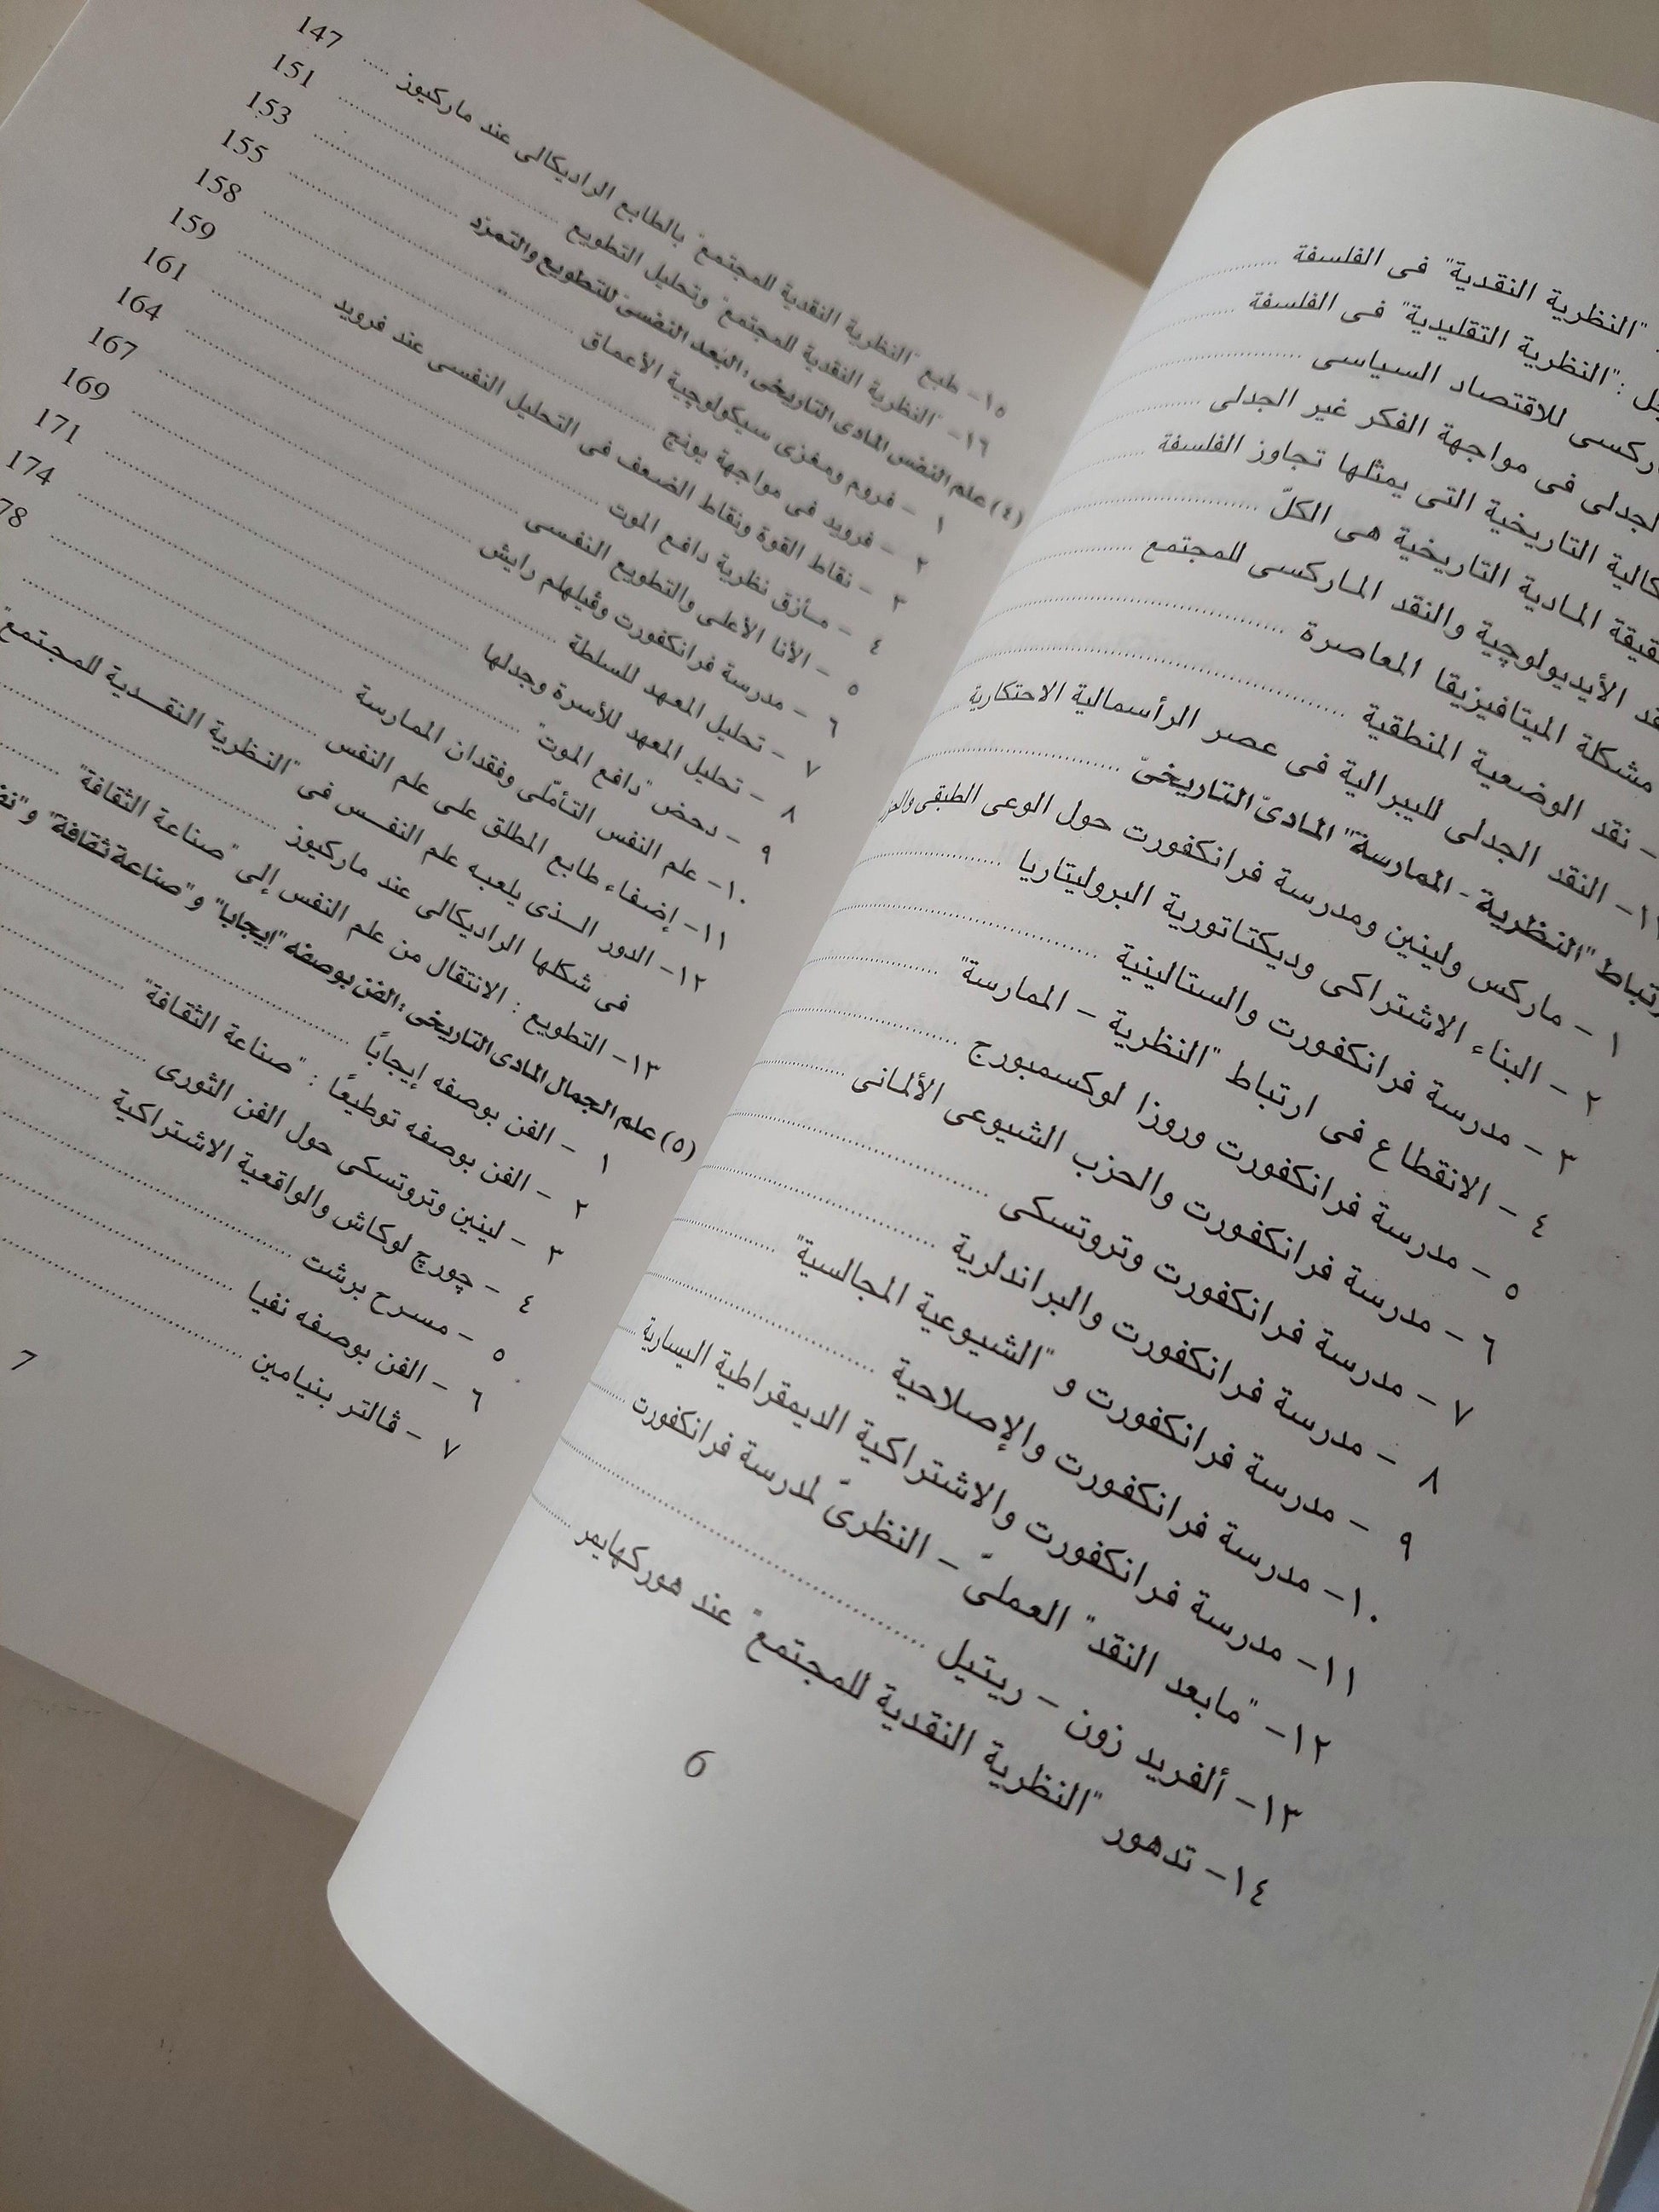 "النظرية النقدية" فى الفلسفة
: "النظرية التقليدية" فى الفلسفة
للاقتصاد السياسى
فى مواجهة الفكر غير الجدلى
التاريخية التى يمثلها تجاوز الفلسفة
المادية التاريخية هى الكلّ
الأيديولوچية والنقد الماركسى للمجتمع
مشكلة الميتافيزيقا المعاصرة
- نقد الوضعية المنطقية
النقد الجدلى لليبرالية فى عصر الرأسمالية الاحتكارية
"النظرية - الممارسة" المادىّ التاريخىّ
١ - ماركس ولينين ومدرسة فرانكفورت حول الوعى الطبقى
٢ - البناء الاشتراكى وديكتاتورية البروليتاريا
٣ - مدرسة فرانكفورت والستالينية
٤ - الانقطاع فى ارتباط "النظرية - الممارسة"
٥ - مدرسة فرانكفورت وروزا لوكسمبورج
٦ - مدرسة فرانكفورت والحزب الشيوعى الألمانى
٧ - مدرسة فرانكفورت وتروتسكى
٨ - مدرسة فرانكفورت والبراندلرية
٩ - مدرسة فرانكفورت و "الشيوعية المجالسية"
١٠- مدرسة فرانكفورت والإصلاحية
١١- مدرسة فرانكفورت والاشتراكية الديمقراطية اليسارية
١٢- "مابعد النقد" العملىّ - النظرىّ لمدرسة فرانكفورت
١٣- ألفريد زون - ريتيل
١٤- تدهور "النظرية النقدية للمجتمع" عند هوركهايمر
6
١٥- طبع "النظرية النقدية للمجتمع" بالطابع الراديكالى عند ماركيوز 147
١٦- "النظرية النقدية للمجتمع" وتحليل التطويع 151
(٤) علم النفس المادى التاريخى : البعد النفسىّ للتطويع والتمرّد 153
١ - فروم ومغزى سيكولوچية الأعماق 155
٢ - فرويد فى مواجهة يونج 158
٣ - نقاط القوة ونقاط الضعف فى التحليل النفسى عند فرويد 159
٤ - مأزق نظرية دافع الموت 161
٥ - الأنا الأعلى والتطويع النفسى 164
٦ - مدرسة فرانكفورت وڤيلهلم رايش 167
٧ - تحليل المعهد للسلطة 169
٨ - تحليل المعهد للأسرة وجدلها 171
٩ - دحض "دافع الموت" 174
١٠- علم النفس التأمّلى وفقدان الممارسة 78
١١- إضفاء طابع المطلق على علم النفس
١٢- الدور الذى يلعبه علم النفس فى "النظرية النقدية للمجتمع"
فى شكلها الراديكالى عند ماركيوز
١٣- التطويع : الانتقال من علم النفس إلى "صناعة الثقافة"
(٥) علم الجمال المادى التاريخى : الفن بوصفه "إيجابا" و"صناعة ثقافة"
١ - الفن بوصفه إيجاباً
٢ - الفن بوصفه توطيعًا : "صناعة الثقافة"
٣ - لينين وتروتسكى حول الفن الثورى
٤ - چورچ لوكاش والواقعية الاشتراكية
٥ - مسرح برشت
٦ - الفن بوصفه نفيا
٧ - ڤالتر بنيامين
7